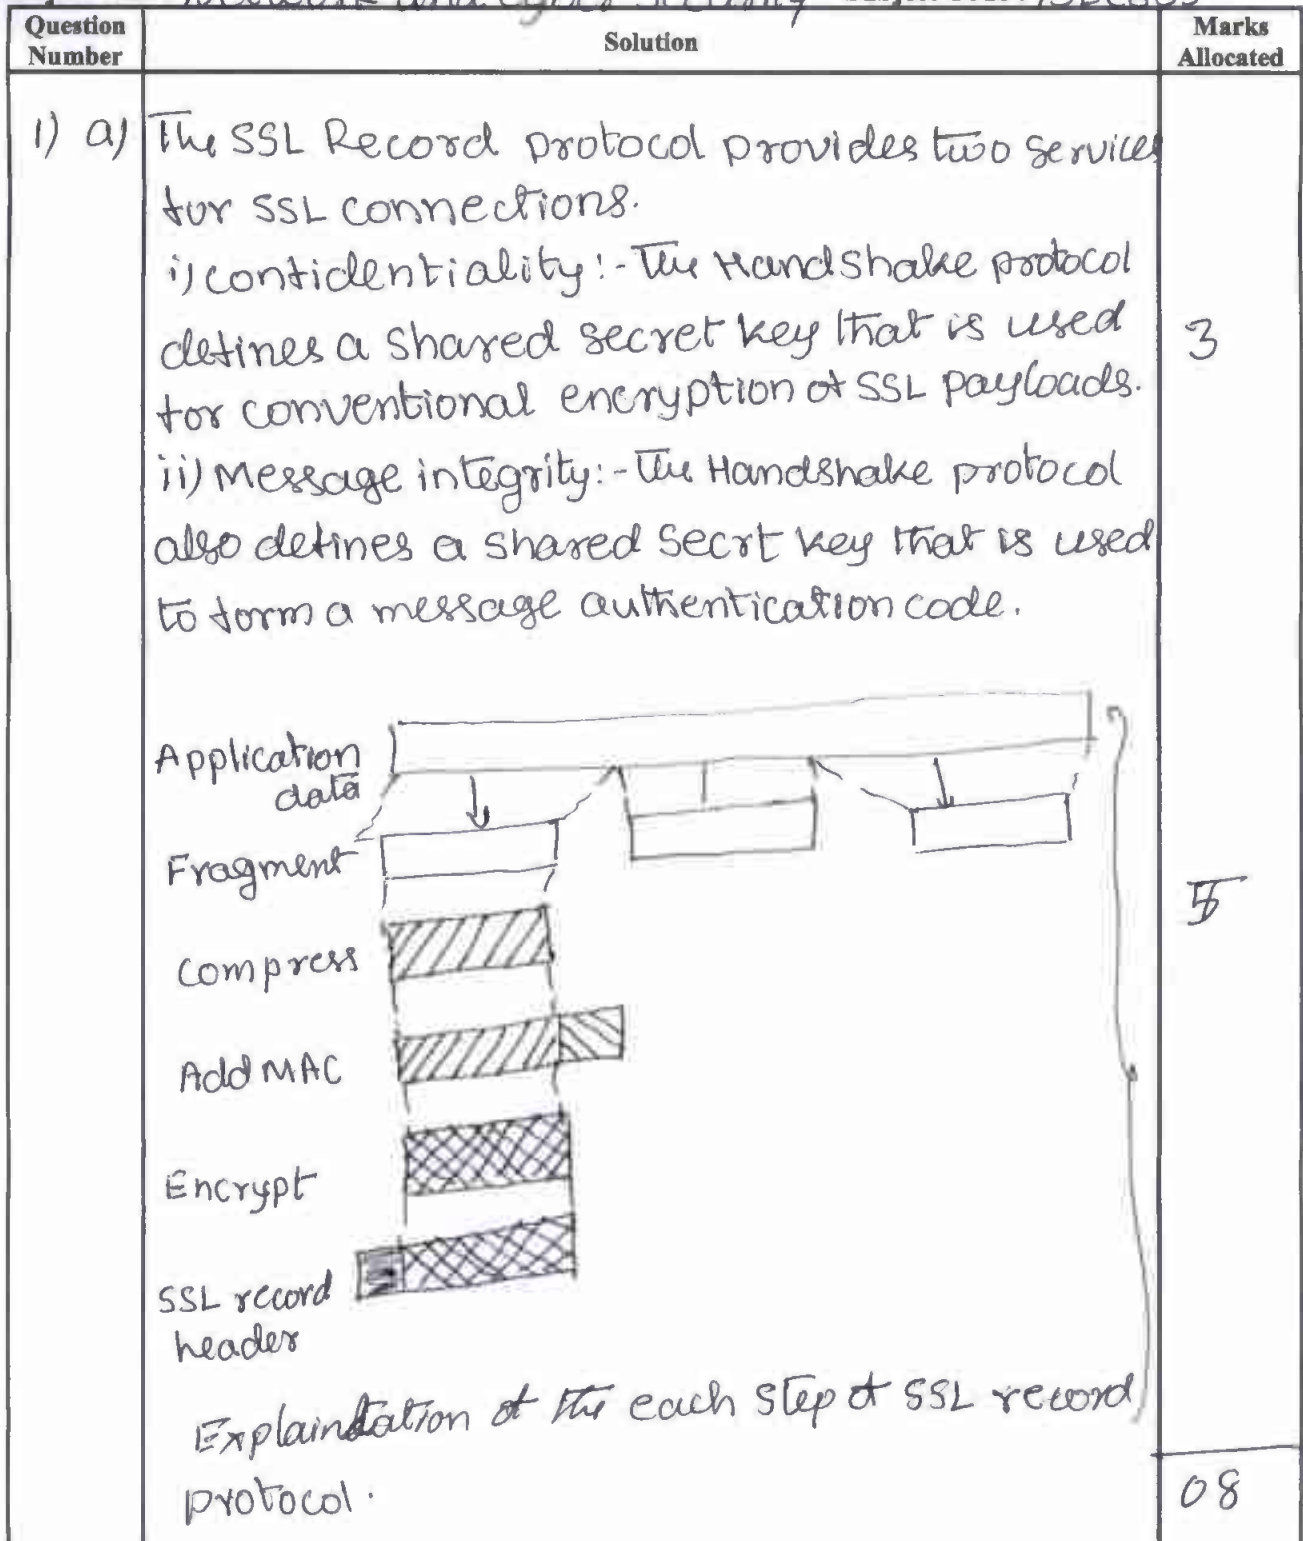 Network and Cyber Security
Question Number
Solution
Marks Allocated
1) a) The SSL Record protocol provides two services
for SSL connections.
i) confidentiality:- The Handshake protocol
defines a shared secret key that is used
3
for conventional encryption of SSL payloads.
ii) Message integrity:- The Handshake protocol
also defines a shared Secrt key that is used
to form a message authentication code.
Application
data
Fragment
5
compress
Add MAC
Encrypt
SSL record
header
Explaindation of the each step of SSL record
protocol.
08